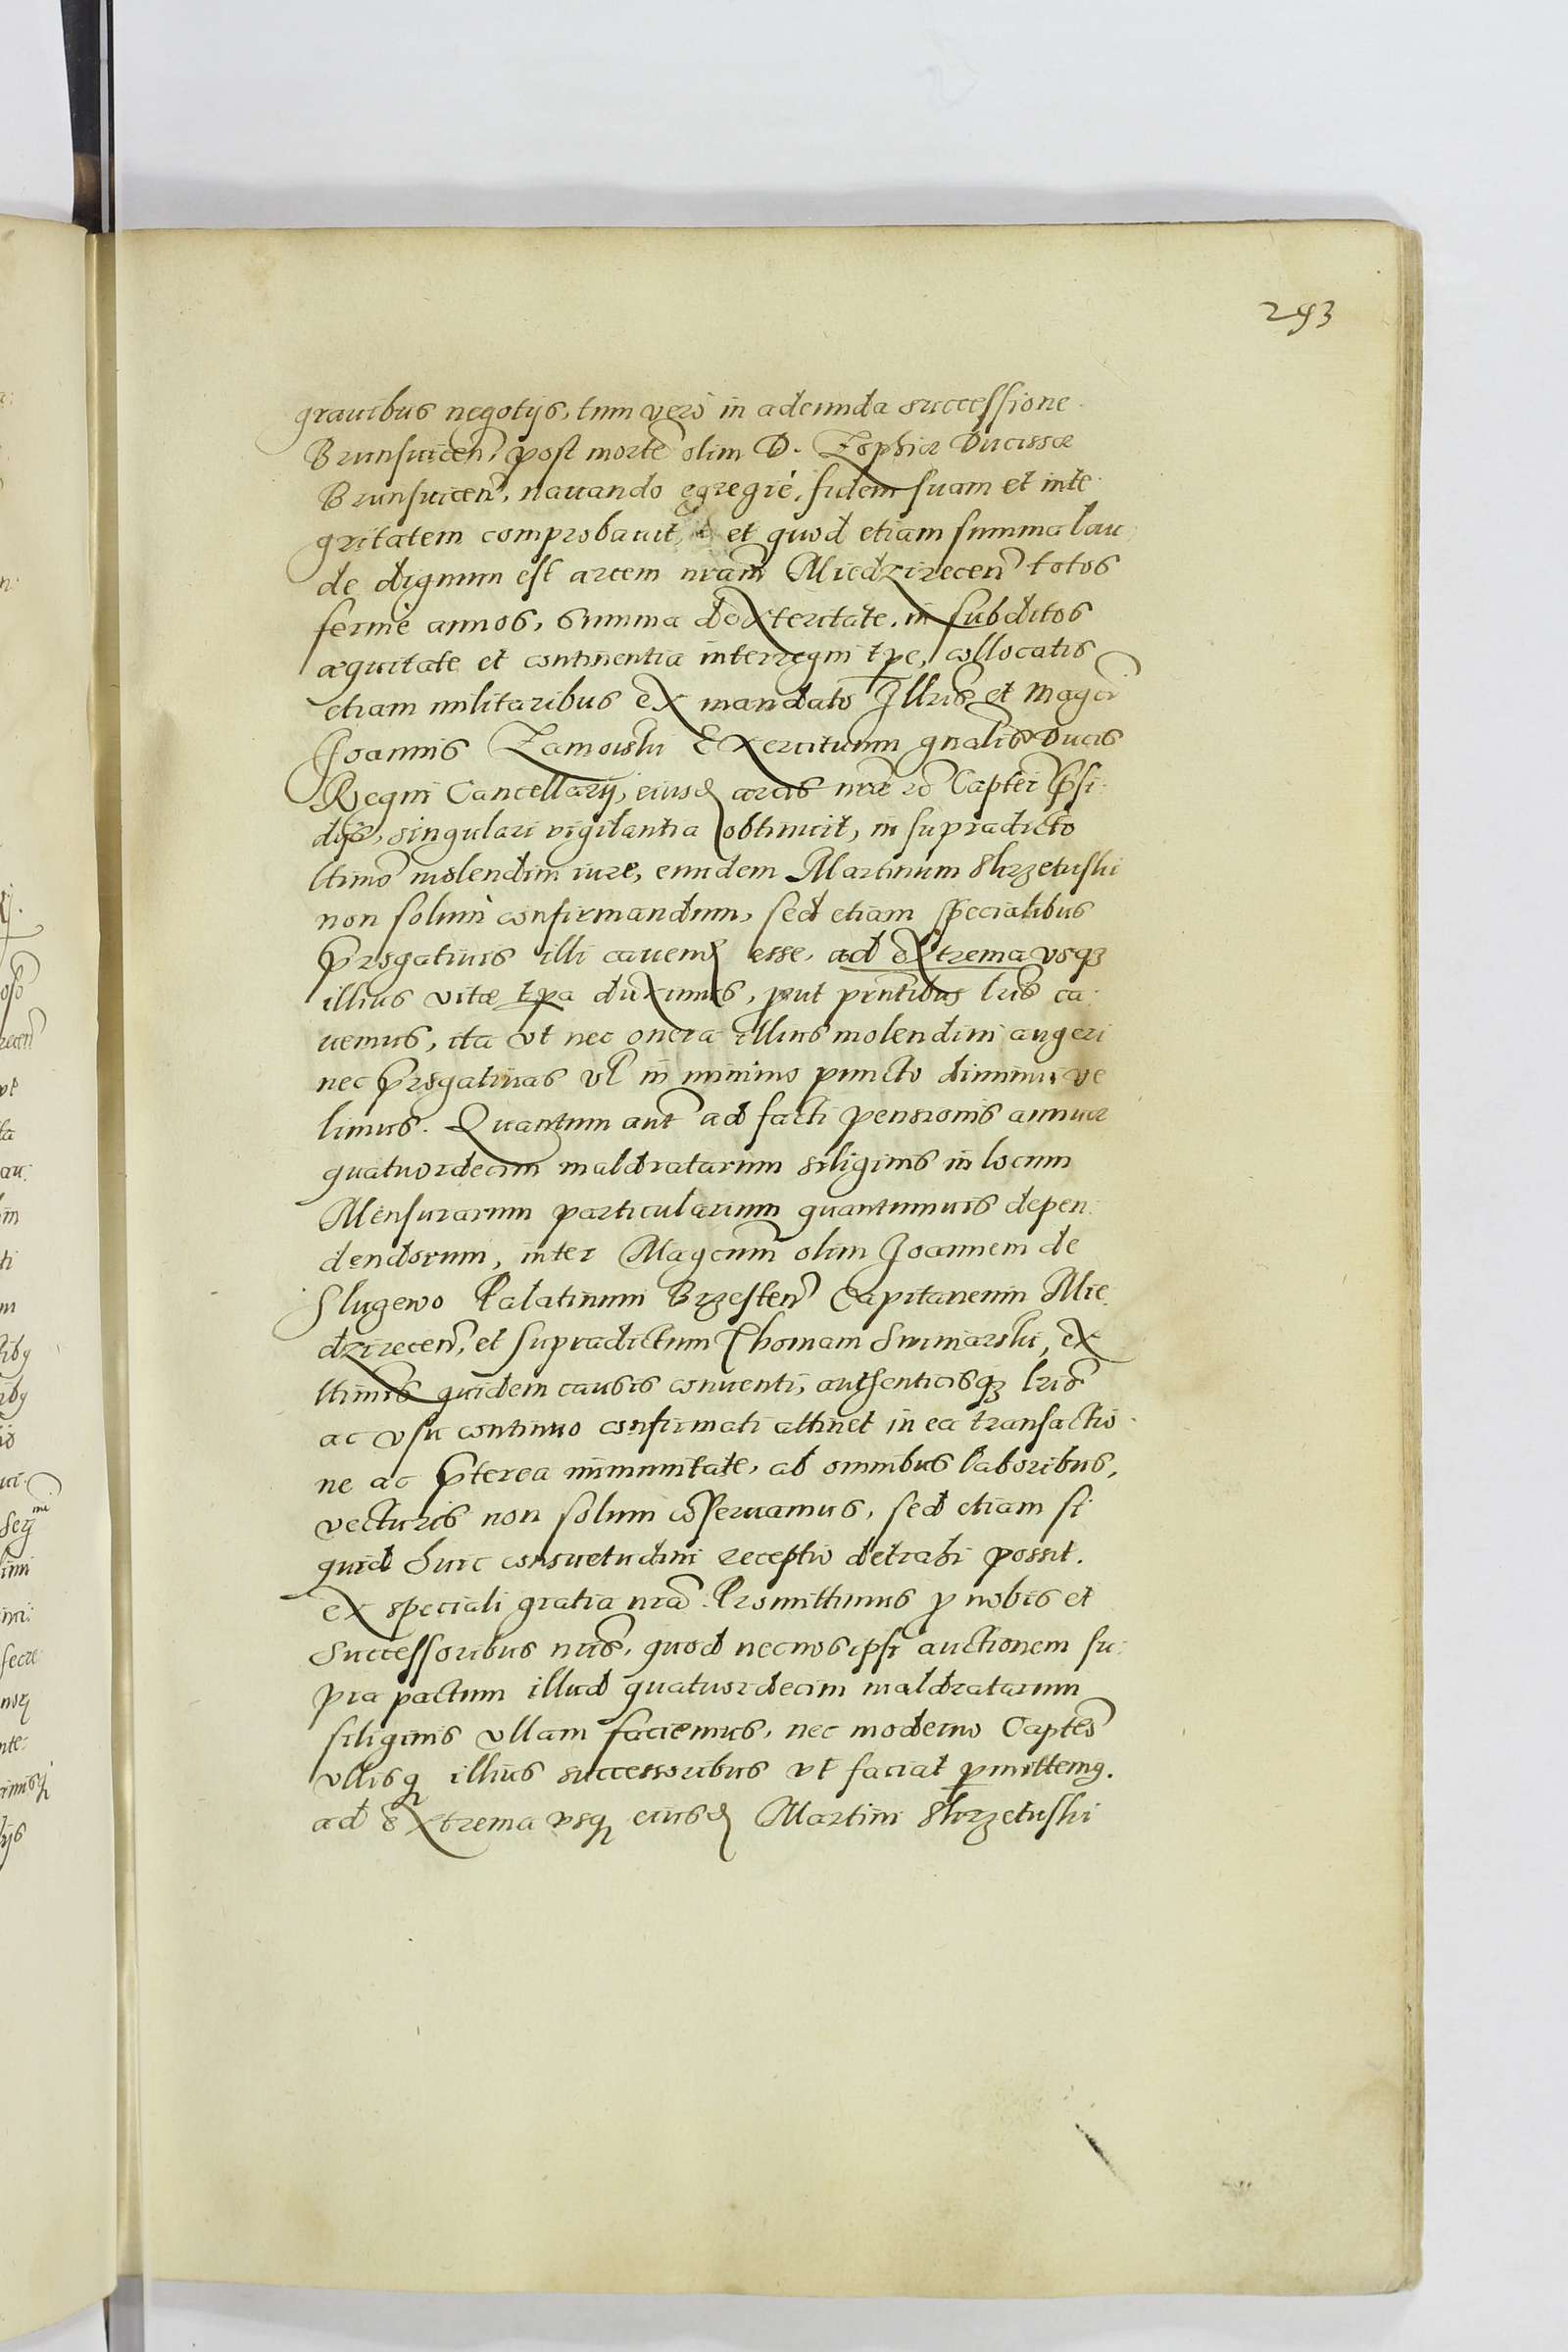 293
grauibus negotijs, tum verò in adeunda successione
Brunsuicen̄, post morte͂ olim D. Zophiæ Ducissæ
Brunsuicen̄, nauando egregiè, fidem suam et inte
gritatem comprobauit, et quod etiam summa lau
de dignum est arcem nr͂am Miedzirecen̄ totos
fermè annos, summa dexteritate, in subditos
æquitate et continentia interregni tpe, collocatis
etiam militaribus ex mandato Illris et Magci
Joannis Zamoiski Exercituum gnalis Ducis
Regni Cancellarij, eiusd arcis nræ Captei
dijs, singulari vigilantia obtinuit, in supradicto
ltimo molendini iure, eundem Martinum Skrzetuski
non solum confirmandum, sed etiam specialibus
progatiuis illi cauend esse, ad extrema vsq
illius vitæ tpa duximus, prout pntibus lris ca
uemus, ita vt nec onera illius molendini augeri
nec progatiuas vl in minimo puncto diminui ve
limus. Quantum aut ad facti pensionis annuæ
quatuordecim maldratarum siliginis in locum
Mensurarum particularium quantumuis depen
dendorum, inter Magcum olim Joannem de
Slugewo Palatinum Brzesten̄ Capitaneum Mie
dzirecen̄, et supradictum Thomam Swinarski, ex
ltimis quidem causis conuenti, authenticisq lris
ac vsu continuo confirmati attinet in ea transactio
ne ac pterea immunitate, ab omnibus laboribus,
vecturis non solum cōseruamus, sed etiam si
quid huic consuetudini receptio detrahi possit.
ex speciali gratia nrā. Promittimus p nobis et
Successoribus nris, quod nec nos ipsi auctionem su
pra pactum illud quatuordecim maldratarum
siliginis vllam faciemus, nec moderno Capteo
vllisq illius successoribus vt faciat pmittemg.
ad extrema vsq eiusd Martini Skrzetuski